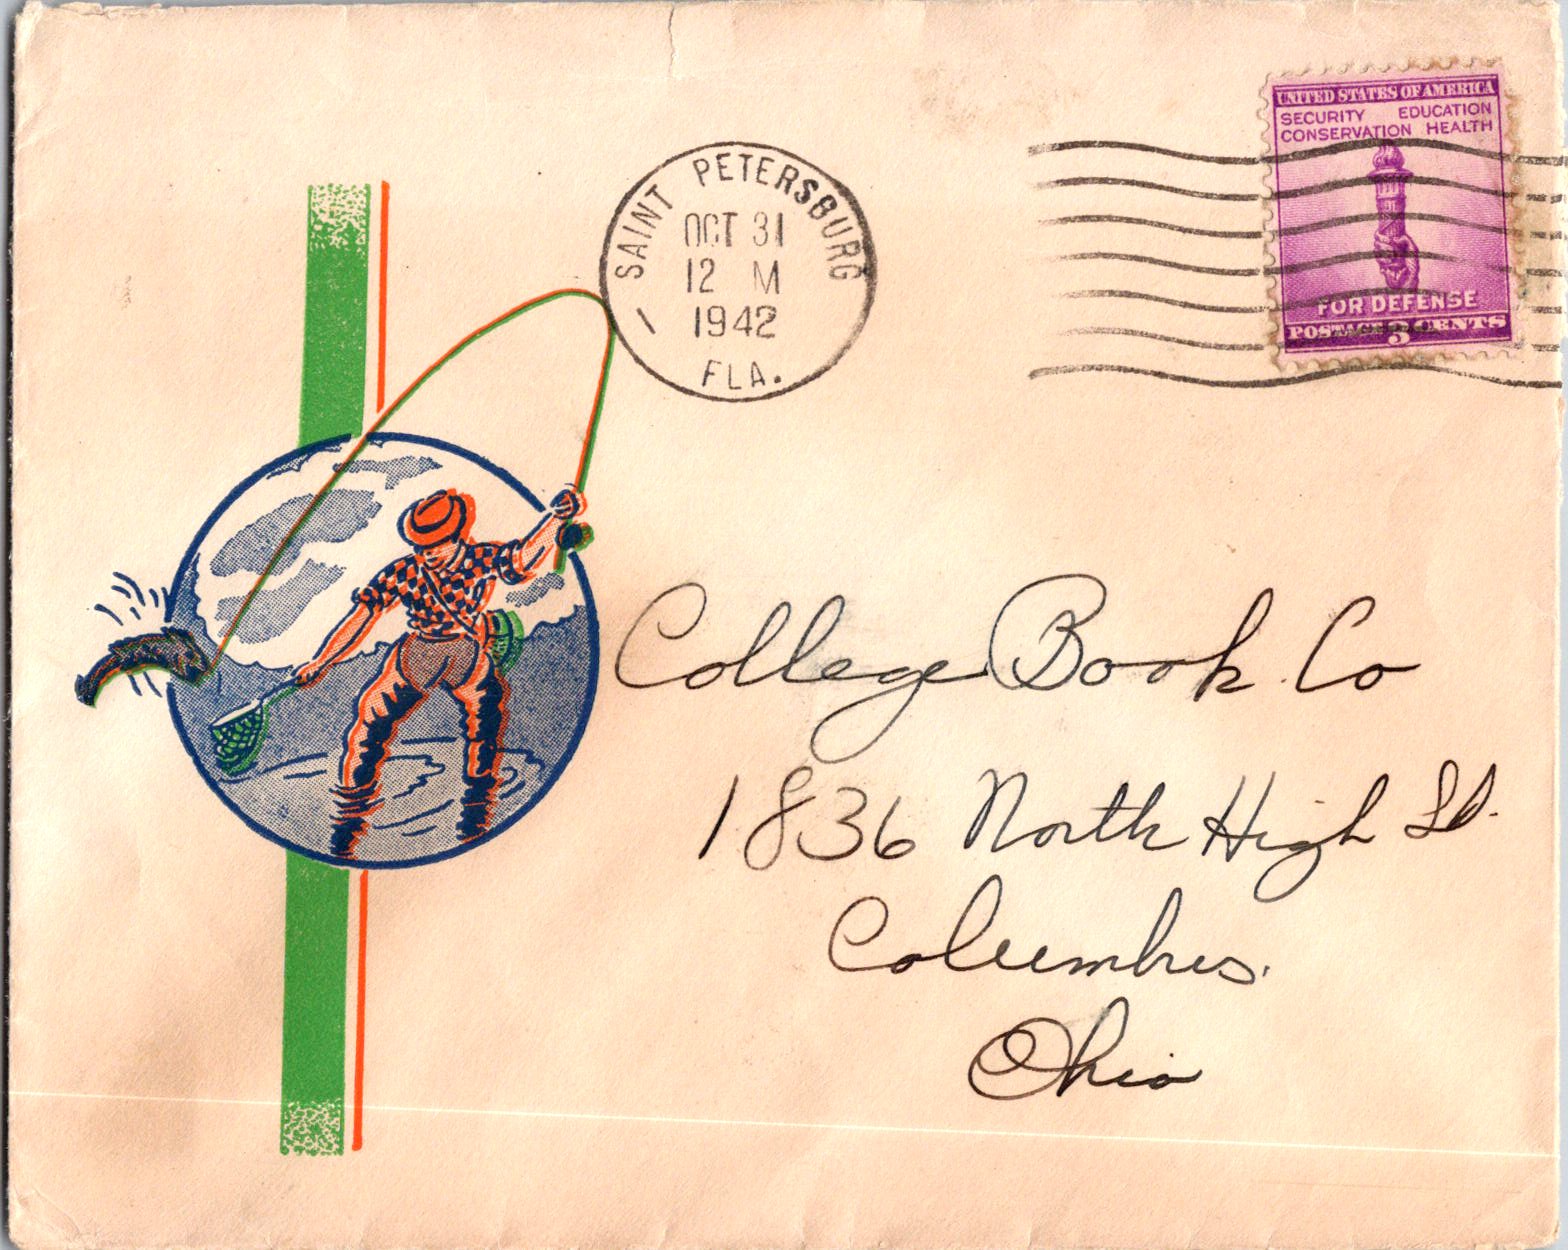 SAINT PETERSBURG
OCT 31
12 M
1942
FLA.
UNITED STATES OF AMERICA
SECURITY EDUCATION
CONSERVATION HEALTH
FOR DEFENSE
POSTAGE 3 CENTS
College Book Co
1836 North High St.
Columbus.
Ohio